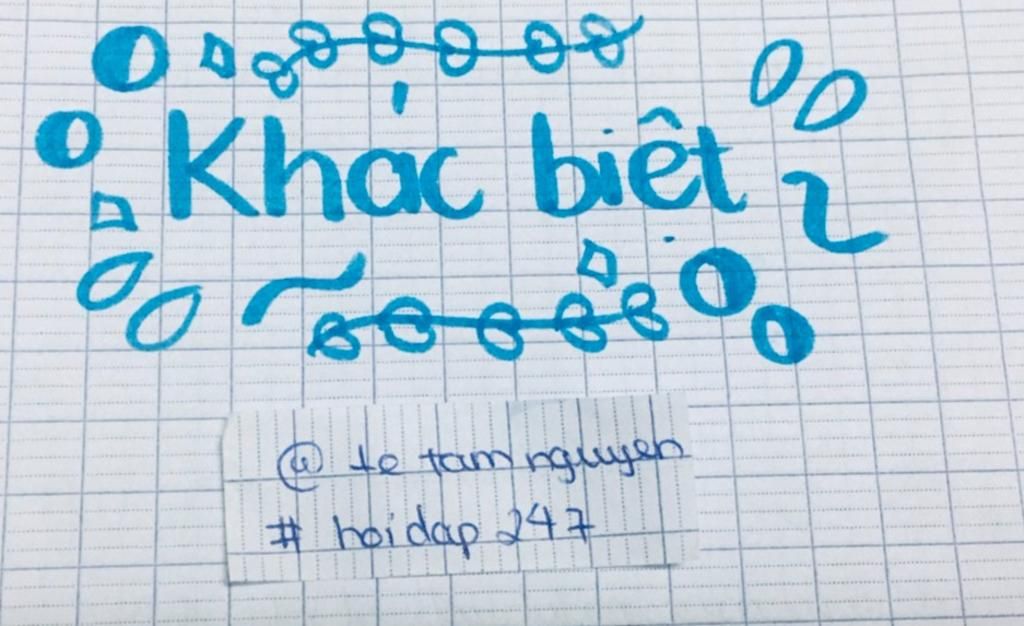 Khác biệt
@ te tam nguyen
# hoidap 247